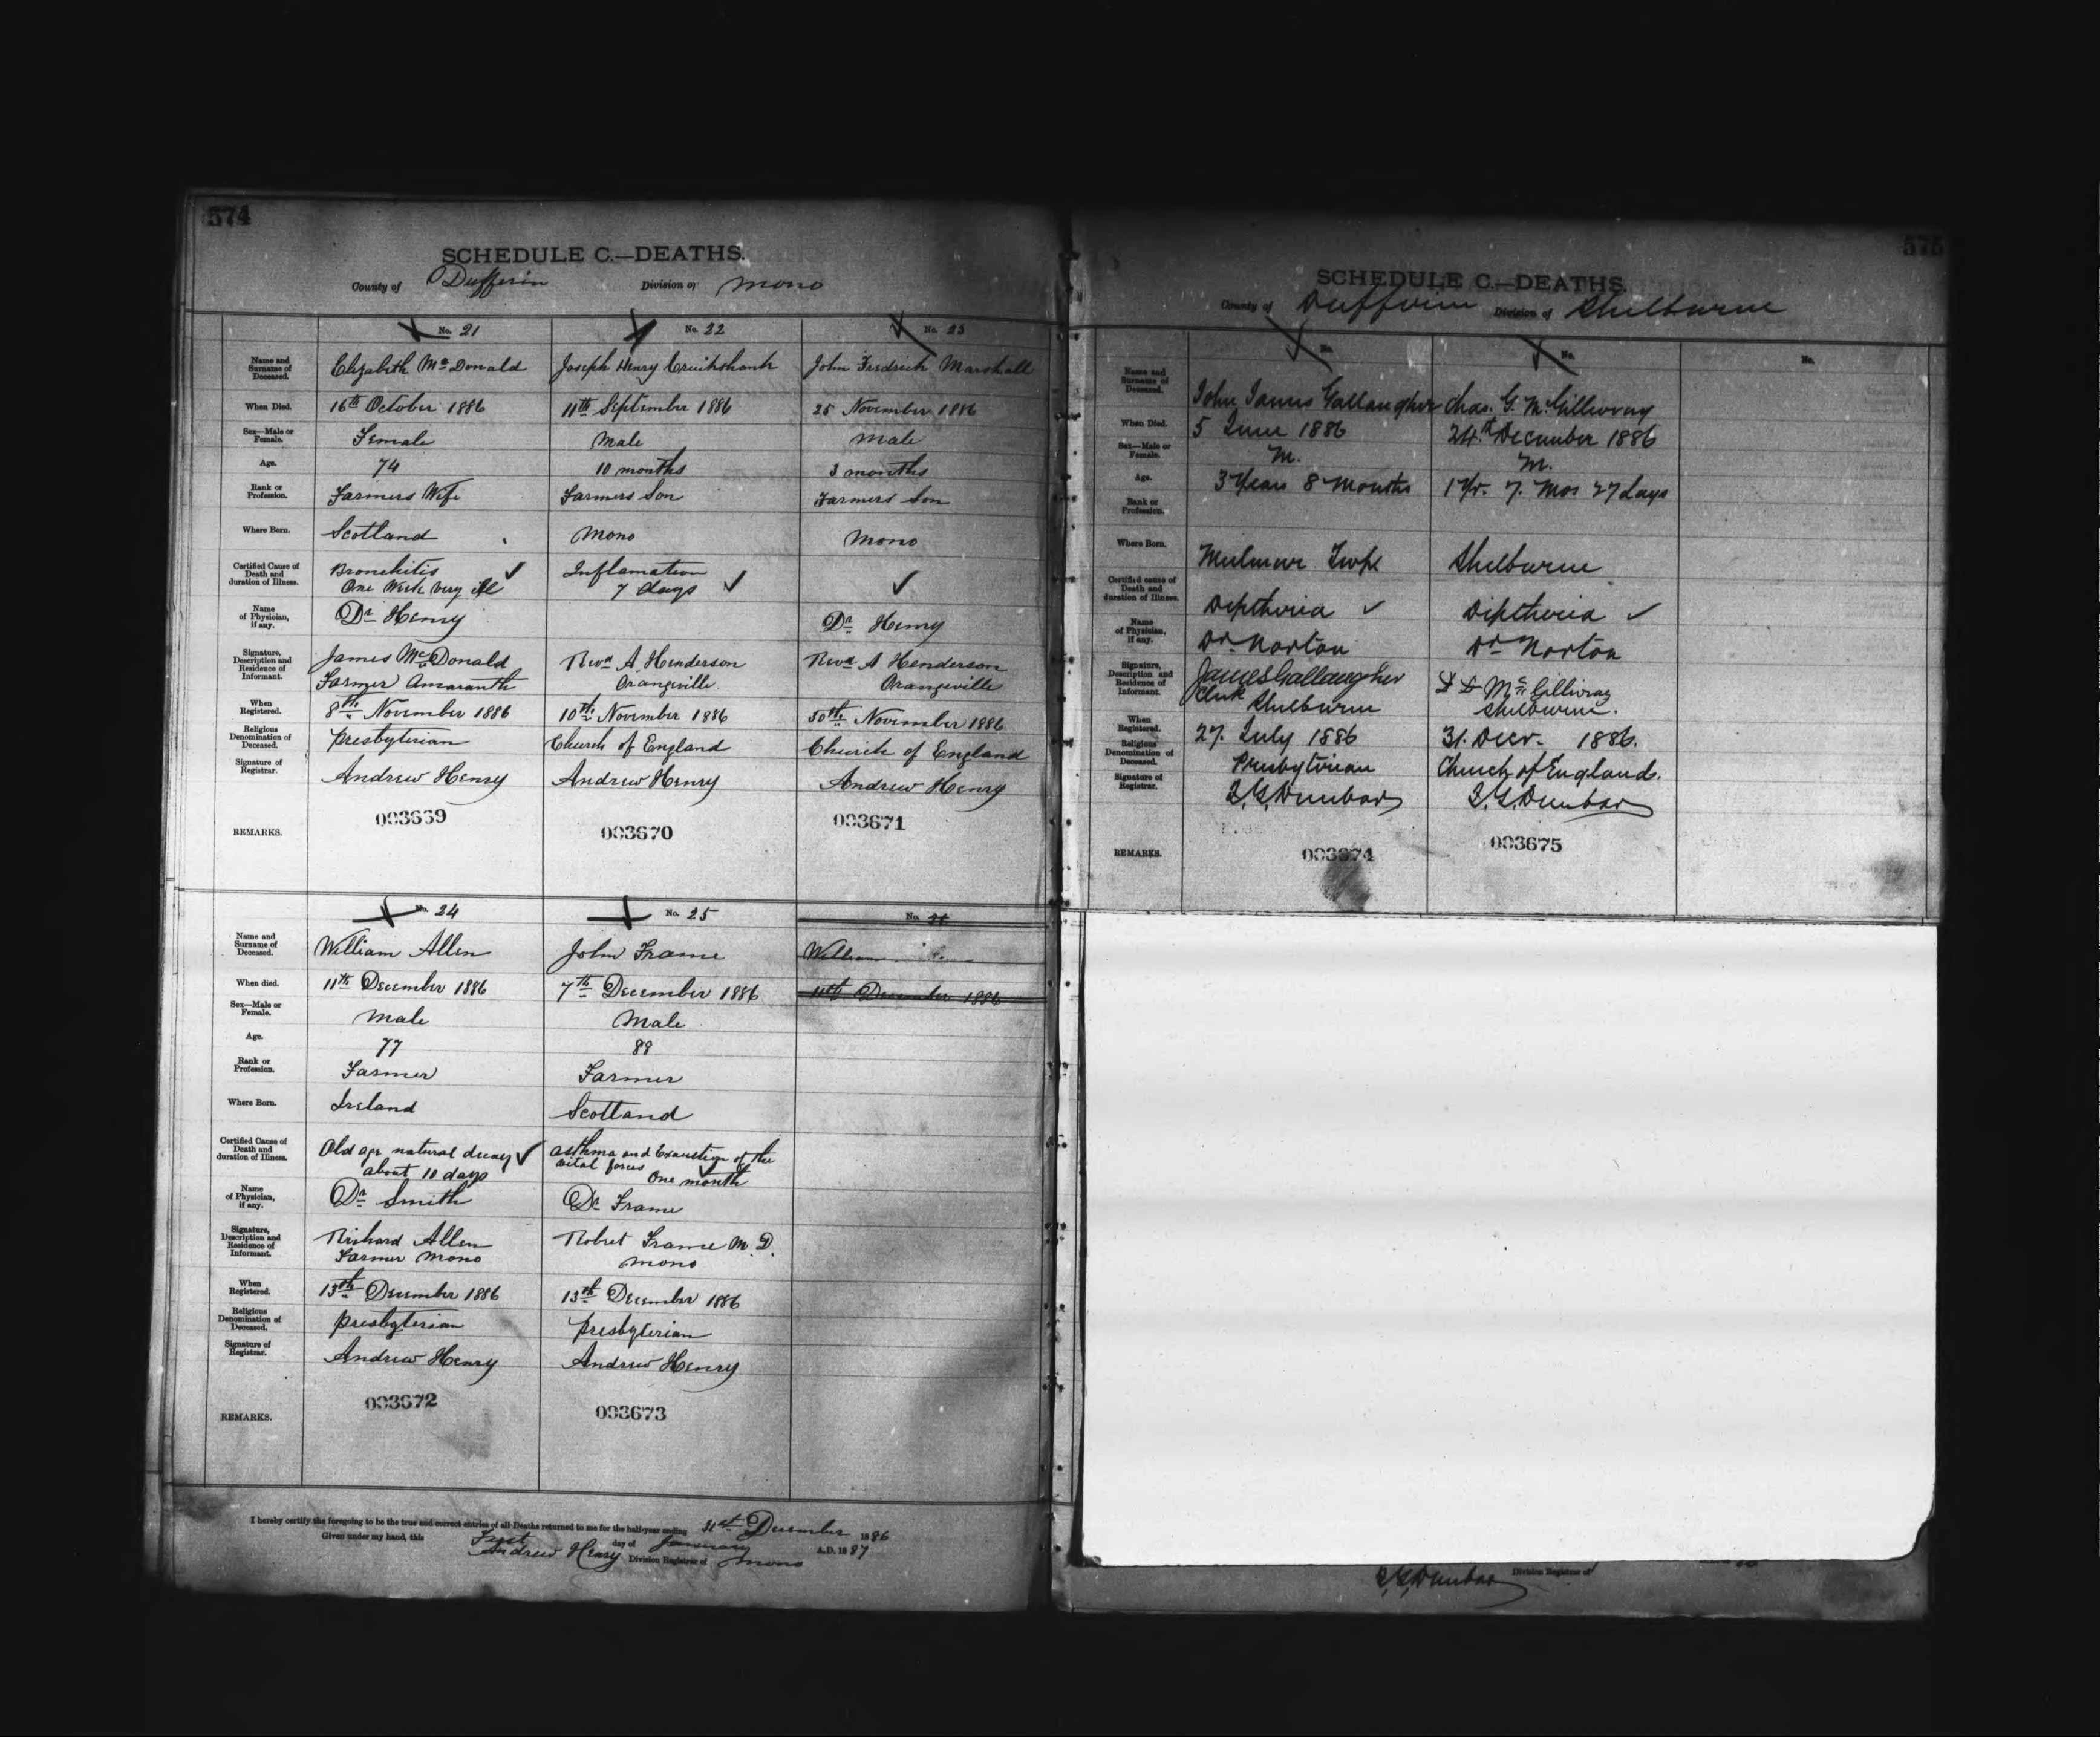 574
SCHEDULE C.—DEATHS.
County of Dufferin Division of Mono
No. 21 No. 22 No. 23
Name and Surname of Deceased. Elizabeth Mc Donald Joseph Henry Cruikshank John Fredrick Marshall
When Died. 16th October 1886 11th September 1886 25 November 1886
Sex—Male or Female. Female Male Male
Age. 74 10 months 3 months
Rank or Profession. Farmers Wife Farmers Son Farmers Son
Where Born. Scotland Mono Mono
Certified Cause of Death and duration of Illness. Bronchitis One Week very ill Inflamation 7 days
Name of Physician, if any. Dr Henry Dr Henry
Signature, Description and Residence of Informant. James McDonald Farmer Amaranth Revd A. Henderson Orangeville Revd A Henderson Orangeville
When Registered. 8th November 1886 10th November 1886 30th November 1886
Religious Denomination of Deceased. Presbyterian Church of England Church of England
Signature of Registrar. Andrew Henry Andrew Henry Andrew Henry
REMARKS. 003669 003670 003671
No. 24 No. 25 No.
Name and Surname of Deceased. William Allen John Frame William
When died. 11th December 1886 7th December 1886 11th December 1886
Sex—Male or Female. Male Male
Age. 77 88
Rank or Profession. Farmer Farmer
Where Born. Ireland Scotland
Certified Cause of Death and duration of Illness. Old age natural decay about 10 days asthma and Exaustion of the vital forces One month
Name of Physician, if any. Dr Smith Dr Frame
Signature, Description and Residence of Informant. Richard Allen Farmer Mono Robret Frame M.D. Mono
When Registered. 13th December 1886 13th December 1886
Religious Denomination of Deceased. Presbyterian Presbyterian
Signature of Registrar. Andrew Henry Andrew Henry
REMARKS. 003672 003673
I hereby certify the foregoing to be the true and correct entries of all Deaths returned to me for the half-year ending 31st December 1886
Given under my hand, this First day of January A.D. 1887
Andrew Henry Division Registrar of Mono
575
SCHEDULE C.—DEATHS.
County of Dufferin Division of Shelburne
No. No. No.
Name and Surname of Deceased. John James Gallaugher Chas. G. McGillivray
When Died. 5 June 1886 24th December 1886
Sex—Male or Female. M. M.
Age. 3 Years 8 Months 1 Yr. 7. Mos 27 days
Rank or Profession.
Where Born. Mulmur Twp Shelburne
Certified cause of Death and duration of Illness. Diptheria Diptheria
Name of Physician, if any. Dr Norton Dr Norton
Signature, Description and Residence of Informant. James Gallaugher Clerk Shelburne McGillivray Shelburne.
When Registered. 27. July 1886 31. Decr. 1886.
Religious Denomination of Deceased. Presbyterian Church of England.
Signature of Registrar. Dunbar Dunbar
REMARKS. 003674 003675
Dunbar Division Registrar of